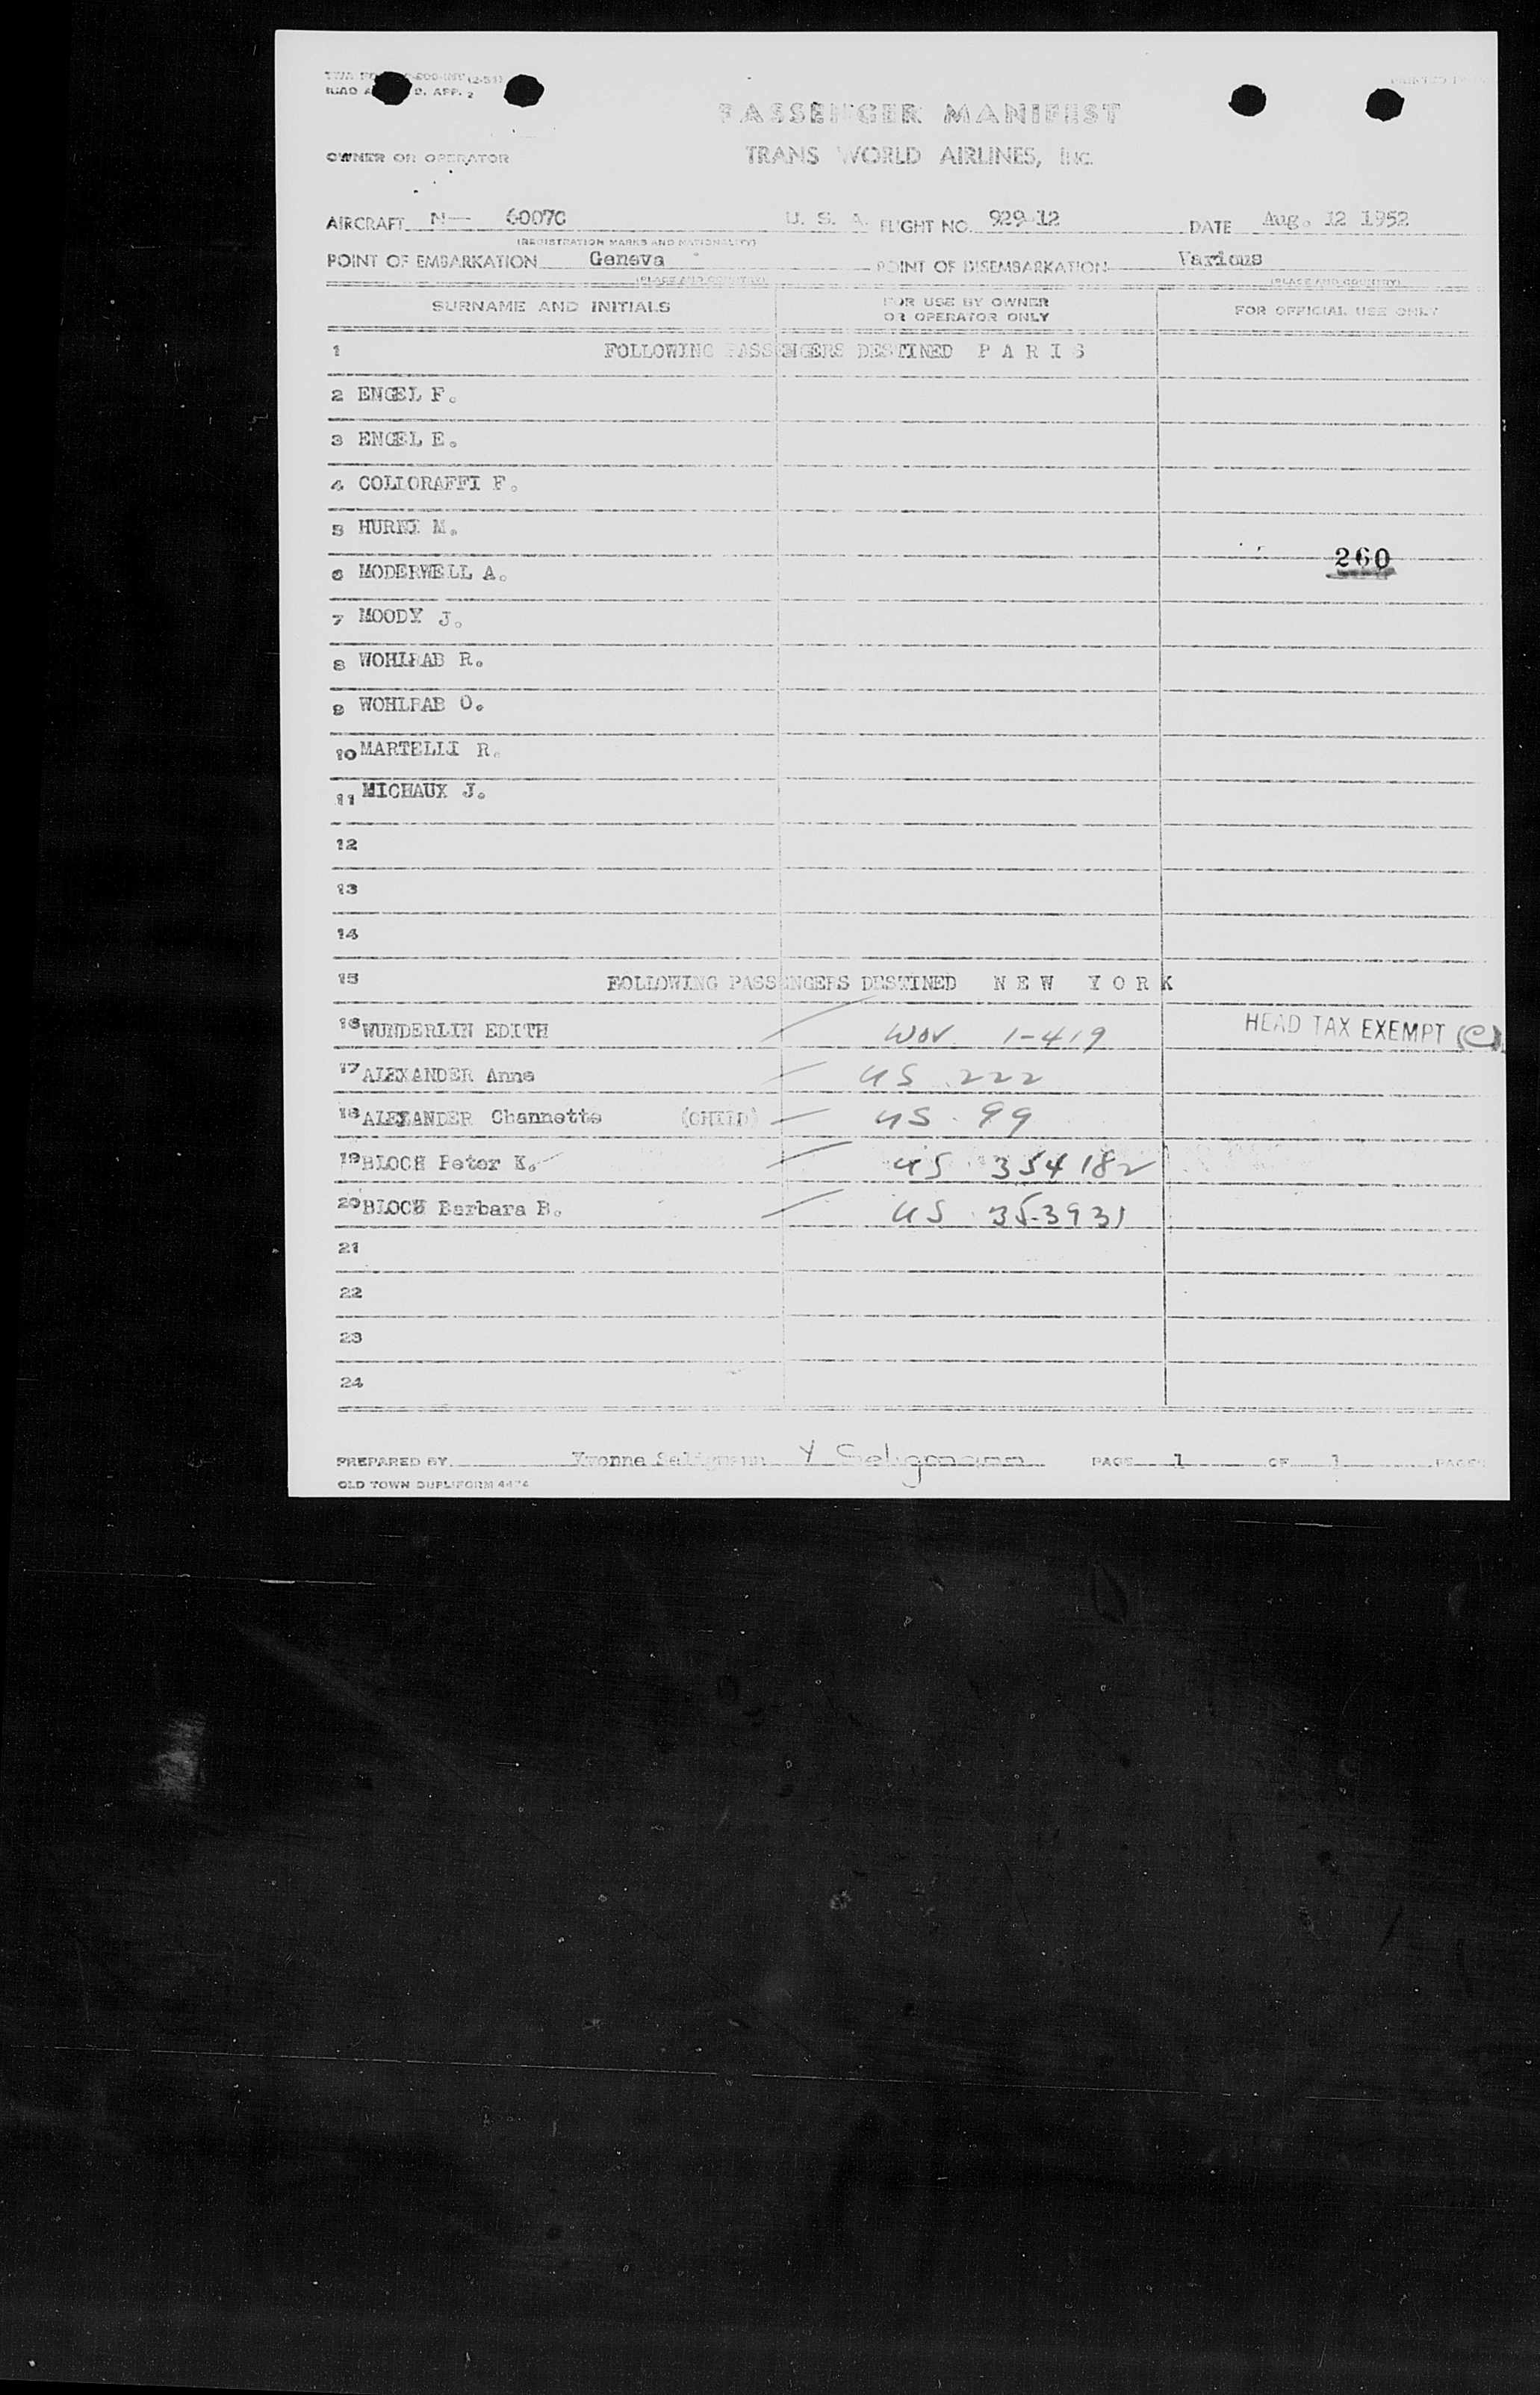 PASSENGER MANIFEST
OWNER OR OPERATOR TRANS WORLD AIRLINES, Inc.
AIRCRAFT N— 6007C U. S. A. FLIGHT NO. 929-12 DATE Aug. 12 1952
(REGISTRATION MARKS AND NATIONALITY)
POINT OF EMBARKATION Geneva POINT OF DISEMBARKATION Various
(PLACE AND COUNTRY) (PLACE AND COUNTRY)
SURNAME AND INITIALS FOR USE BY OWNER OR OPERATOR ONLY FOR OFFICIAL USE ONLY
1 FOLLOWING PASSENGERS DESTINED P A R I S
2 ENGEL F.
3 ENGEL E.
4 COLLORAFFI F.
5 HURNI M.
260
6 MODERWELL A.
7 MOODY J.
8 WOHLRAB R.
9 WOHLRAB O.
10 MARTELLI R.
11 MICHAUX J.
12
13
14
15 FOLLOWING PASSENGERS DESTINED N E W Y O R K
16 WUNDERLIN EDITH WOV 1-419 HEAD TAX EXEMPT (C)
17 ALEXANDER Anne US 222
18 ALEXANDER Channette (CHILD) US 99
19 BLOCH Peter K. US 354182
20 BLOCH Barbara B. US 353931
21
22
23
24
PREPARED BY Yvonne Seligmann Y Seligmann PAGE 1 OF 1 PAGES
OLD TOWN DUPLIFORM 4474